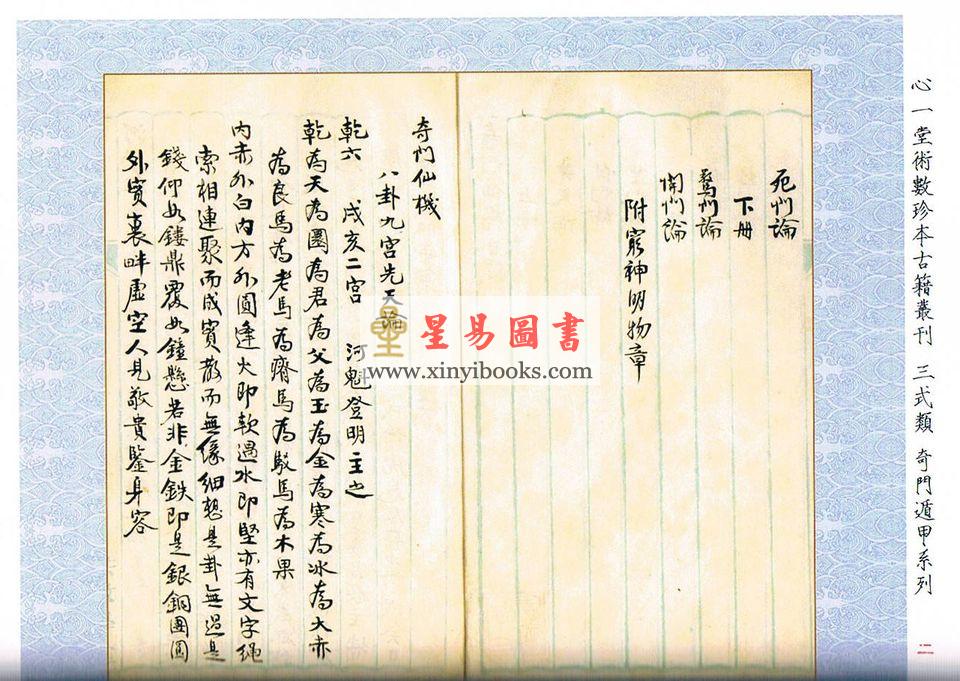 心一堂術數珍本古籍叢刊 三式類 奇門遁甲系列
二
死门論
下册
驚门論
開门論
附窮神明物章
奇门仙機
八卦九宮先天論
乾六 戌亥二宮 河魁登明主之
乾為天為圜為君為父為玉為金為寒為冰為大赤
為良馬為老馬為瘠馬為駁馬為木果
内赤外白内方外圓逢火即軟遇水即堅亦有文字绳
索相連聚而成寳散而無緣細想是卦無過是
錢仰如鏤鼎覆如鐘懸若非金鉄即是銀銅團圓
外實裏畔虛空人見敬貴鑒身容
星易圖書
www.xinyibooks.com